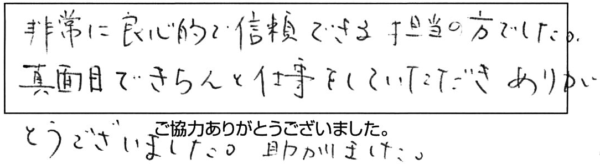 非常に良心的で信頼できる担当の方でした。
真面目できちんと仕事をしていただきありが
とうございました。助かりました。
ご協力ありがとうございました。